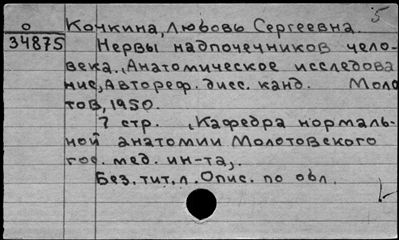 5
о Кочкина, Любовь Сергеевна.
34875 Нервы надпочечников чело-
века. Анатомическое исследова
ние, Автореф. дисс. канд. Моло
тов, 1950.
7 стр. (Кафедра нормаль-
ной анатомии Молотовского
гос. мед. ин-та).
Без. тит. л. Опис. по обл.